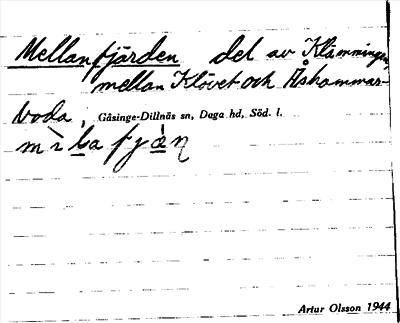 Mellanfjärden del av Klämmingen,
mellan Klövet och Åshammar-
boda, Gåsinge-Dillnäs sn, Daga hd, Söd. l.
Artur Olsson 1944